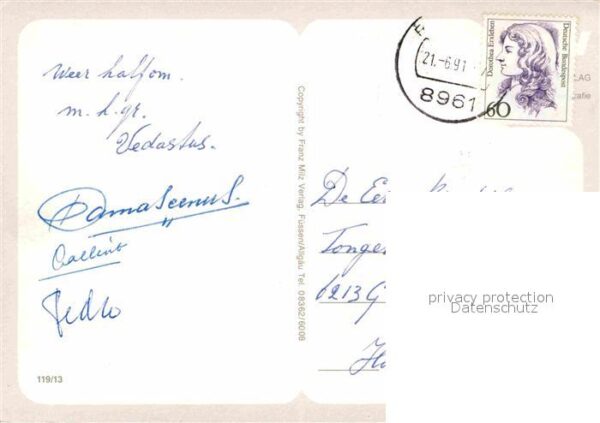 Weer halfom.
m. h. gr.
Vedastus.
Damascenus.
Pedro
119/13
Copyright by Franz Milz Verlag, Füssen/Allgäu Tel. 08362/6008
21.-6.91
8961
Dorothea Erxleben
Deutsche Bundespost
60
LAG
afie
De
Tonge
6213 G
privacy protection
Datenschutz